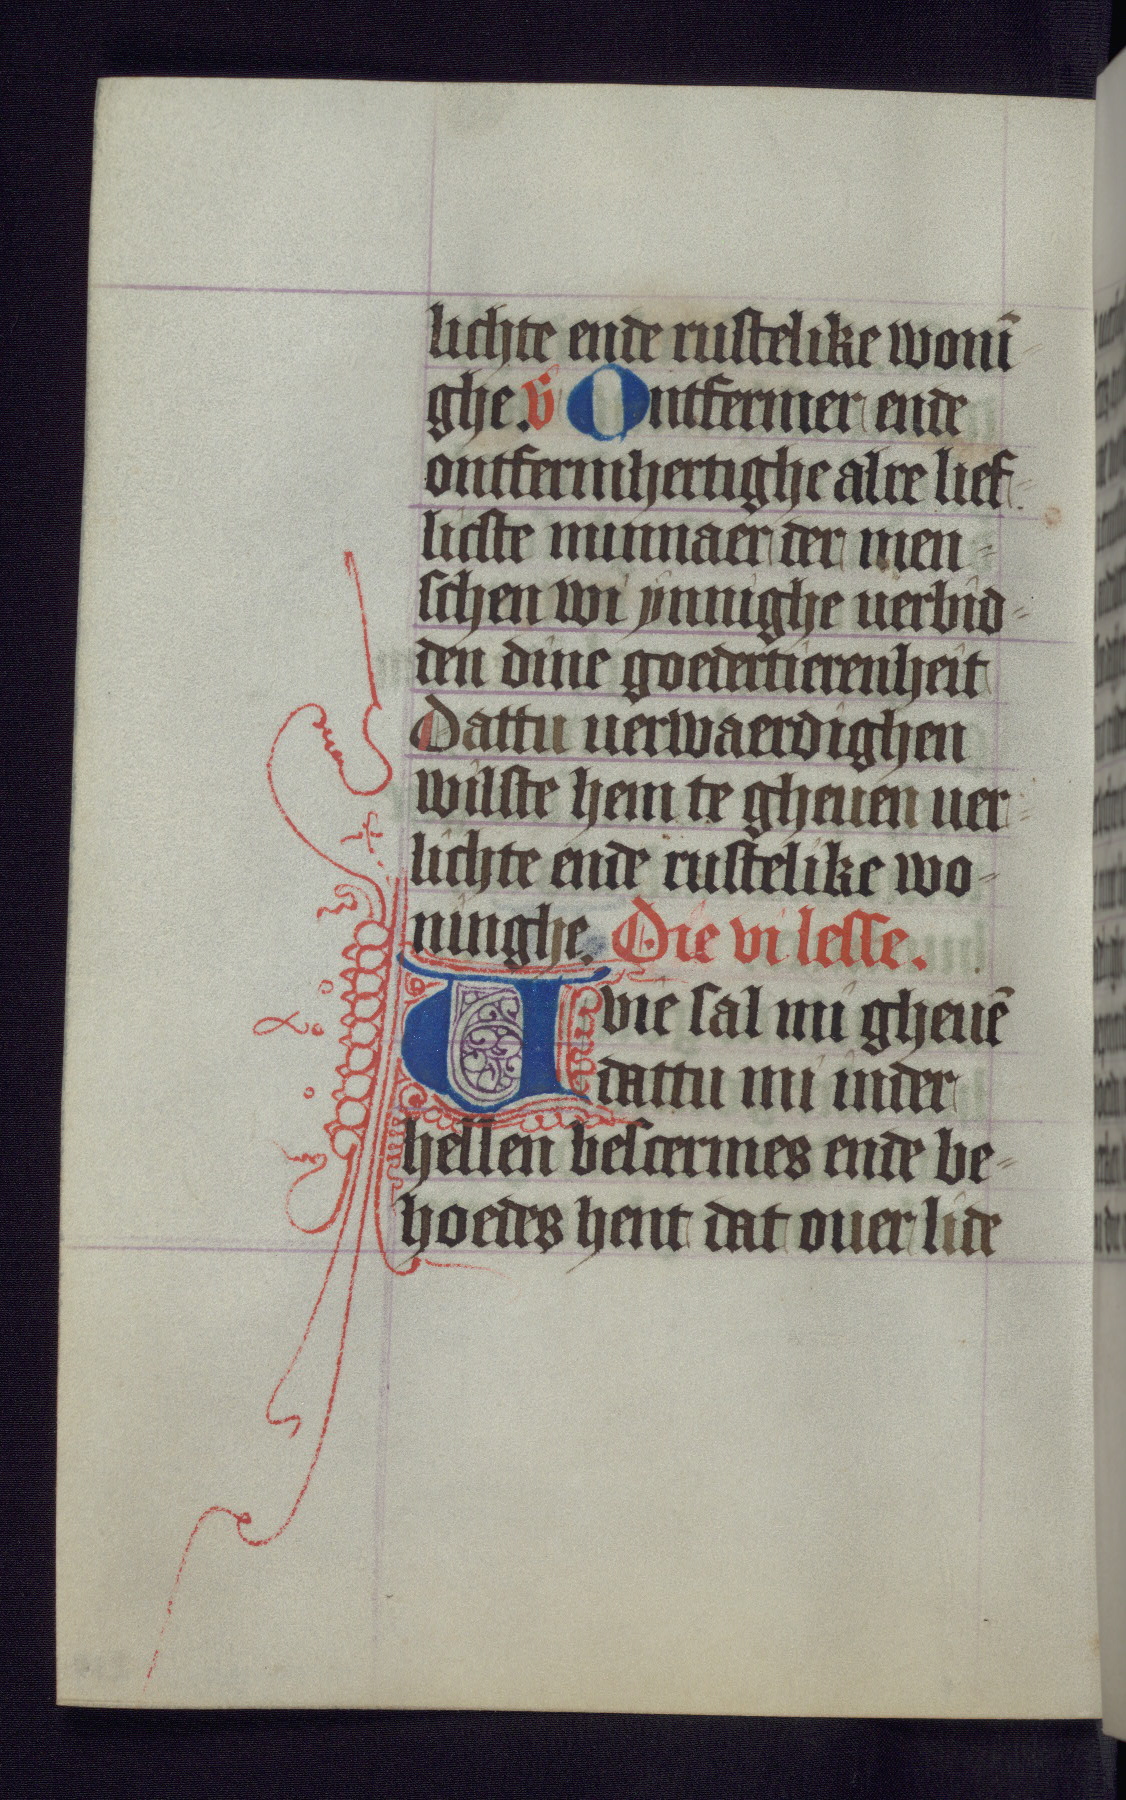 lichte ende rustelike woni̅-
ghe. v̅ Ontfermer ende
ontfermhertighe alre lief-
licste minnaer der men-
schen wi ynnighe verbid-
den dine goedertierenheit
Dattu uerwaerdighen
wilste hem te gheuen uer-
lichte ende rustelike wo-
ninghe. Die vi lesse.
Wie sal mi gheue̅
dattu mi inder
hellen bescermes ende be-
hoedes hent dat ouer lide